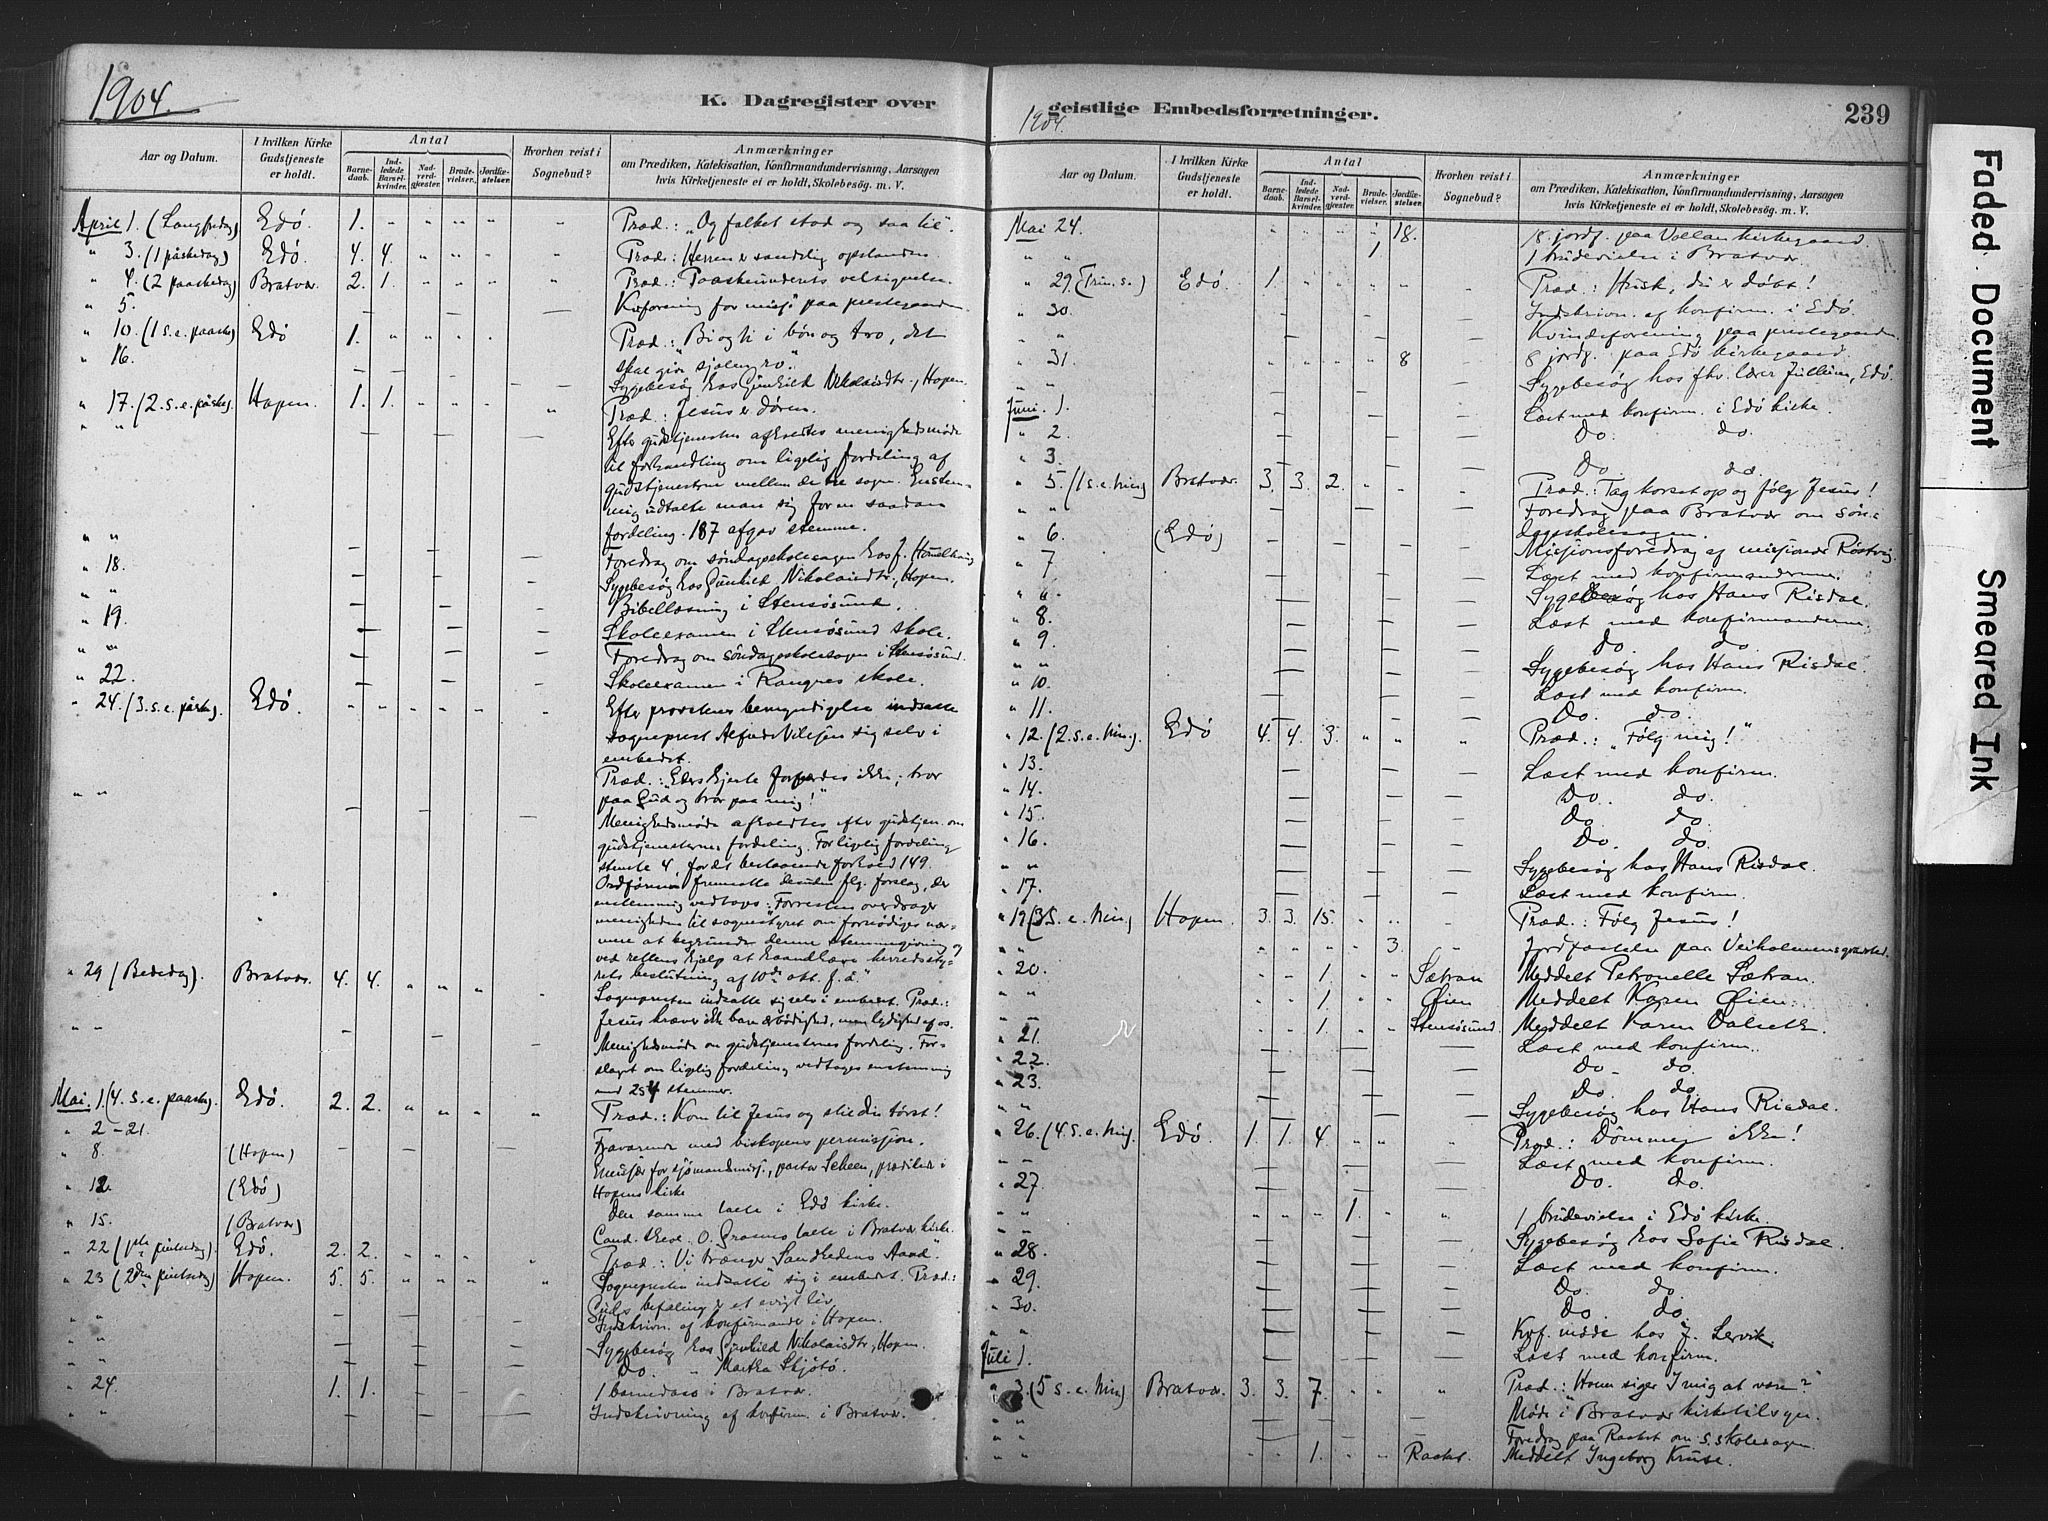 1904.
K. Dagregister over
Aar og Datum.
I hvilken Kirke Gudstjeneste er holdt.
Antal
Barnedaab.
Indledede Barselkvinder.
Nadverdgjester.
Brudevielser.
Jordfæstelser.
Hvorhen reist i Sognebud?
Anmærkninger
om Prædiken, Katekisation, Konfirmandundervisning, Aarsagen
hvis Kirketjeneste ei er holdt, Skolebesøg. m. V.
April 1. (Langfredag) Edö. 1. " " " " " Præd.: "Og folket stod og saa til".
" 3. (1 påskedag) Edö. 4. 4. " " " " Præd.: Herren er sandelig opstanden.
" 4. (2 paaskedag) Bratvær. 2. 1. " " " " Præd.: Paaskeunderets velsignelse.
" 5. Kvforening for misj. paa prestegaarden.
" 10. (1 s. e. paaske) Edö 1. " " " " Præd.: Bi og ti i bön og tro, det
skal give sjælen ro".
" 16. Sygebesög hos Gunhild Nikolaisdtr., Hopen.
" 17. (2. s. e. påske). Hopen. 1. 1. " " " " Præd.: Jesus er dören.
" " Efter gudstjenesten afholdtes menighedsmöde
til forhandling om ligelig fordeling af
gudstjenestene mellem de tre sogn. Enstem-
mig udtalte man sig for en saadan
fordeling. 187 afgav stemme.
" " Foredrag om söndagsskolesagen hos J.
" 18. Sygebesög hos Gunhild Nikolaisdtr, Hopen.
" " Bibellæsning i Stensösund.
" 19. Skoleexamen i Stensösund skole.
" " Foredrag om söndagsskolesagen i Stensösund.
" 22. Skoleexamen i Rangnes skole.
" 24. (3. s. e. påske). Edö. " " " " " " Efter provstens bemyndigelse indsatte
sogneprest Alfred sig selv i
embedet.
Præd.: Eders hjerte forfærdes ikke; tror
paa Gud og tror paa mig!"
" " Menighedsmöde afholdtes efter gudstjen. om
gudstjenesternes fordeling. For ligelig fordeling
stemte 4, for det bestaaende forhold 149.
Ordföreren fremsatte desuden flg. forslag, der
enstemmig vedtoges: Forresten overdrager
menigheden til sognestyret om fornödiges nær-
mere at begrunde denne stemmegivning og
ved rettens hjælp at haandhæve herredssty-
rets beslutning af 10de okt. f. å."
" 29 (Bededag). Bratvær. 4. 4. " " " " Sognepresten indsatte sig selv i embedet. Præd.:
Jesus kræver ikke bare ærbödighed, men lydighed af os.
" " Menighedsmöde om gudstjenesternes fordeling. For-
slaget om ligelig fordeling vedtages enstemmig
med 254 stemmer.
Mai. 1. (4. s. e. paaske). Edö. 2. 2. " " " " Præd.: Kom til Jesus og slik din törst!
" 2-21. Fraværende med biskopens permissjon.
" 8. (Hopen) Emissær for sjömandsmisj., pastor Scheen, prædikede i
Hopens kirke
" 12. (Edö) Den samme talte i Edö kirke.
" 15. (Bratvær) Cand. theol. O. talte i Bratvær kirke.
" 22 (1ste pintsedag). Edö. 2. 2. " " " " Præd.: Vi trænger "Sandhedens Aand".
" 23 (2den pintsedag) Hopen. 5. 5. " " " " Sognepresten indsatte sig i embedet. Præd.:
Guds befaling er et evigt liv.
" " Indskrivn. af konfirmander i Hopen.
" " Sygebesög hos Gunhild Nikolaisdtr, Hopen.
" " Do. " Martha Skjötö.
" 24. 1. 1. 1 barnedaab i Bratvær.
" " Indskrivning af konfirm. i Bratvær.
1904.
geistlige Embedsforretninger.
239
Aar og Datum.
I hvilken Kirke Gudstjeneste er holdt.
Antal
Barnedaab.
Indledede Barselkvinder.
Nadverdgjester.
Brudevielser.
Jordfæstelser.
Hvorhen reist i Sognebud?
Anmærkninger
om Prædiken, Katekisation, Konfirmandundervisning, Aarsagen
hvis Kirketjeneste ei er holdt, Skolebesøg. m. V.
Mai 24. " " " " 18. 18 jordf. paa Vollan kirkegaard.
" " 1 1 brudevielse i Bratvær.
" 29. (Trin. s.) Edö. 1. " " " " " Præd.: Husk, du er döbt!
" 30. Indskrivn. af konfirm. i Edö.
" " Kvindeforening paa prestegaarden.
" 31. " " " " 8 8 jordf. paa Edö kirkegaard.
" " Sygebesög hos fhv. lærer Jullum, Edö.
Juni. 1. Læst med konfirm. i Edö kirke.
" 2. Do. do.
" 3. Do. do.
" 5. (1 s. e. trin) Bratvær. 3. 3. 2. " " " Præd.: Tag korset op og fölg Jesus!
" " Foredrag paa Bratvær om sön-
dagsskolesagen.
" 6. (Edö) Misjonsforedrag af misjonær Röstvig.
" 7 Læst med konfirmanderne.
" " Sygebesög hos Hans Risdal.
" 8. Læst med konfirmanderne.
" 9. Do. do.
" " Sygebesög hos Hans Risdal.
" 10. Læst med konfirm.
" 11. Do. do.
" 12. (2. s. e. trin). Edö 4. 4. 3. " " " Præd.: "Fölg mig!"
" 13. Læst med konfirm.
" 14. Do. do.
" 15. Do. do.
" 16. Do. do.
" " Sygebesög hos Hans Risdal.
" 17. Læst med konfirm.
" 19 (3 S. e. trin) Hopen. 3. 3. 15. " " " Præd.: Fölg Jesus!
" " " " " 3. " Jordfæstelse paa Veiholmens gravsted.
" 20. " " 1. " " Sætran Meddelt Petronelle Sætran.
" " " " 1. " " Öien Meddelt Karen Öien.
" " " " 1. " " Stensösund. Meddelt Karen Dalseth.
" 21. Læst med konfirm.
" 22. Do. do.
" 23. Do. do.
" " Sygebesög hos Hans Risdal.
" 26. (4. s. e. trin). Edö. 1. 1. 4. " " " Præd.: Dömmer ikke!
" " Læst med konfirm.
" 27. Do. do.
" " 1. 1 brudevielse i Edö kirke.
" " Sygebesög hos Sofie Risdal.
" 28. Læst med konfirm.
" 29. Do. do.
" 30. Do. do.
" " Kvf. möde hos J. Lervik
Juli 1. Læst med konfirm.
" 3. (5 s. e. trin) Bratvær. 3. 3. 7. " " " Præd.: "Hvem siger I mig at være?"
" " Möde i Bratvær kirketilsyn.
" " Foredrag paa Raaket om s.skolesagen.
" " 1. " " Raaket. Meddelt Ingeborg Kruse.
Faded Document
Smeared Ink